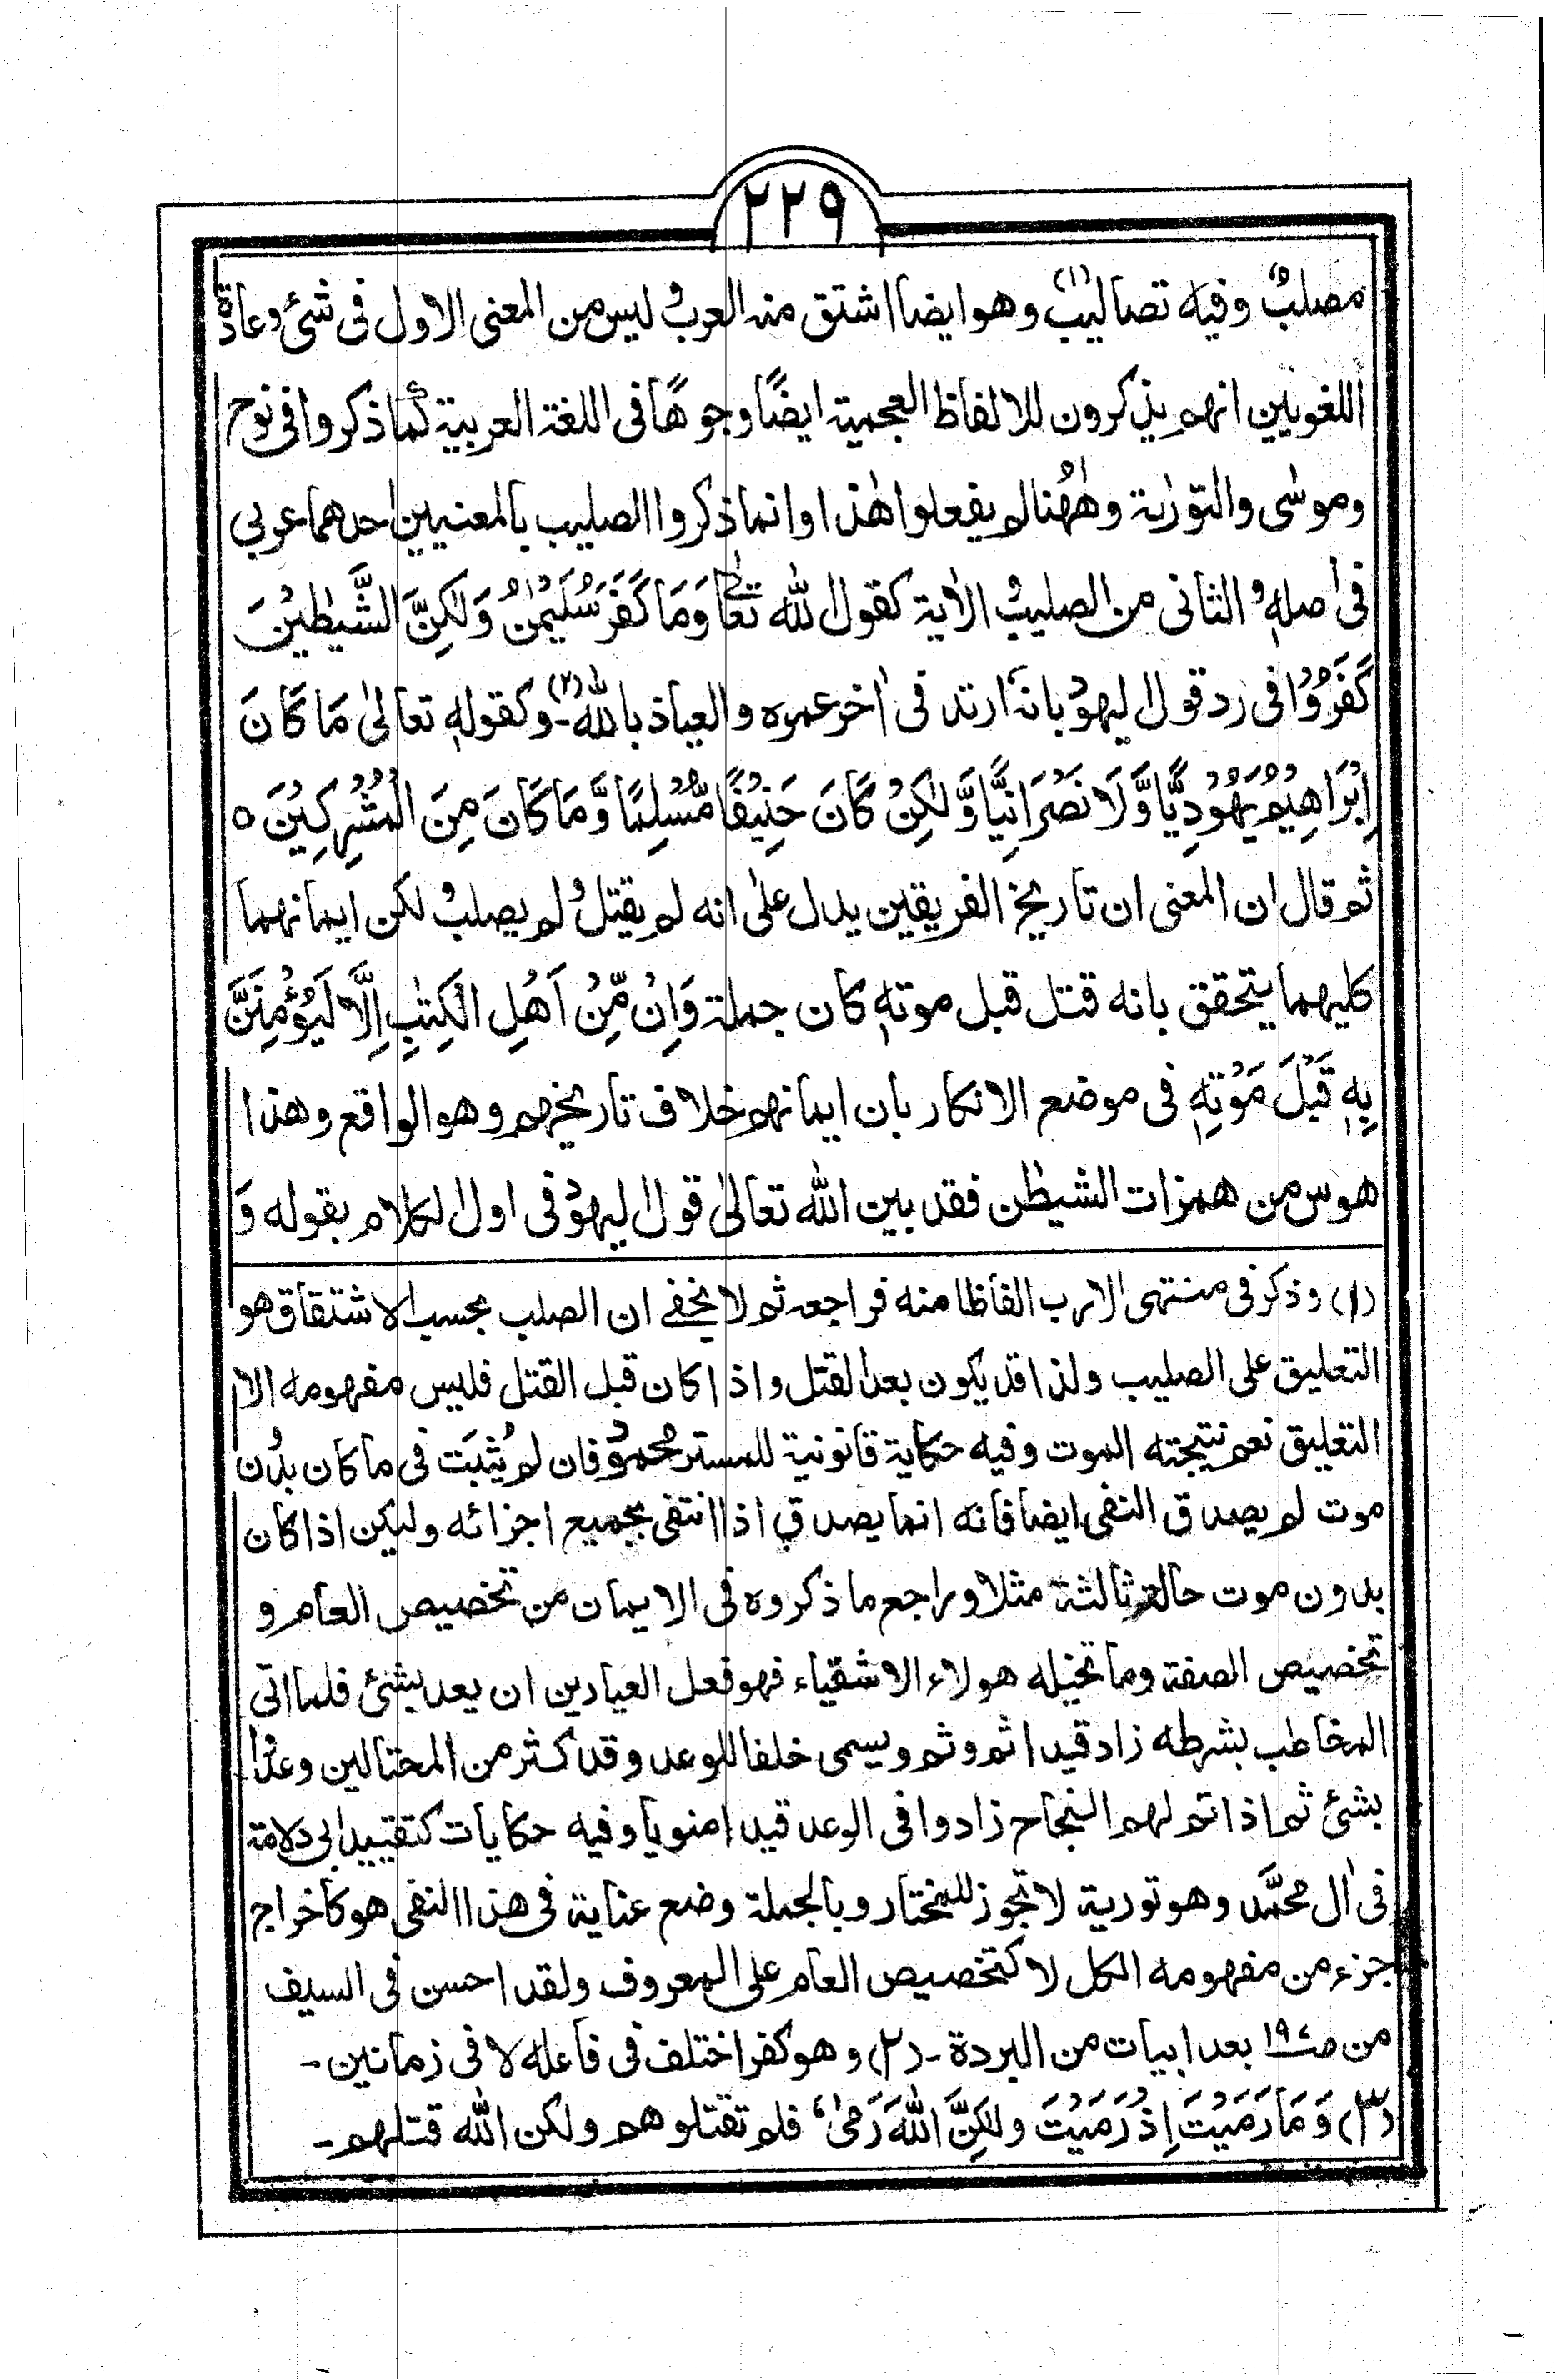 ٢٢٩
مصلبٌ وفيه تصاليب (١) وهو ايضا اشتق منه العرب و ليس من المعنى الاول فى شئ وعادة
اللغويين انهم يذكرون للالفاظ العجمية ايضًا وجوهًا فى اللغة العربية كما ذكروا فى نوح
وموسٰى والتورٰىة وهٰهُنا لم يفعلوا هٰذا وانما ذكروا الصليب بالمعنيين احدهما عربى
فى اصلهٖ و الثانى من الصليب و الاٰية كقول الله تعالٰى وَمَا كَفَرَ سُلَيْمٰنُ وَلٰكِنَّ الشَّيٰطِيْنَ
كَفَرُوْا فى رد قول اليهود بانه ارتد فى اٰخر عمره والعياذ بالله (٢) ـ وكقولهٖ تعالىٰ مَا كَانَ
اِبْرَاهِيْمُ يَهُوْدِيًّا وَّلَا نَصْرَانِيًّا وَّلٰكِنْ كَانَ حَنِيْفًا مُّسْلِمًا وَّمَا كَانَ مِنَ الْمُشْرِكِيْنَ ٥
ثم قال ان المعنى ان تاريخ الفريقين يدل علٰى انه لم يقتل و لم يصلب و لكن ايمانهما
كليهما يتحقق بانه قتل قبل موتهٖ كان جملة وَاِنْ مِّنْ اَهْلِ الْكِتٰبِ اِلَّا لَيُؤْمِنَنَّ
بِهٖ قَبْلَ مَوْتِهٖ فى موضع الانكار بان ايمانهم خلاف تاريخهم وهو الواقع وهذا
هوس من همزات الشيطٰن فقد بين الله تعالىٰ قول اليهود فى اول الكلام بقوله وَ
(١) وذكر فى منتهى الارب الفاظا منه فراجعه ثم لا يخفے ان الصلب بحسب الاشتقاق هو
التعليق على الصليب ولذا قد يكون بعد القتل واذا كان قبل القتل فليس مفهومه الا
التعليق نعم نتيجته الموت وفيه حكاية قانونية للمستر محمود فان لم يُثبَت فى ما كان بدون
موت لم يصدق النفى ايضا فانه انما يصدق اذا انتفى بجميع اجزائه وليكن اذا كان
بدون موت حالة ثالثة مثلا وراجع ما ذكروه فى الايمان من تخصيص العام و
تخصيص الصفة وما تخيله هولاء الاشقياء فهو فعل العيادين ان يعد بشئ فلما اتى
المخاطب بشرطه زاد قيدا ثم وثم ويسمى خلفا للوعد وقد كثر من المحتالين وعدوا
بشئ ثم اذا تم لهم النجاح زادوا فى الوعد قيدا منويا وفيه حكايات كتقييد ابى دلامة
فى اٰل محمَّد وهو تورية لا تجوز للمختار وبالجملة وضع عناية فى هذا النفى هو كاخراج
جزء من مفهومه الكل لا كتخصيص العام على المعروف ولقد احسن فى السيف
من ص١٩ بعد ابيات من البردة ـ (٢) وهو كفر اختلف فى فاعله لا فى زمانين ـ
(٣) وَمَا رَمَيْتَ اِذْ رَمَيْتَ ولٰكِنَّ اللهَ رَمٰىۚ فلم تقتلوهم ولكن الله قتلهم ـ